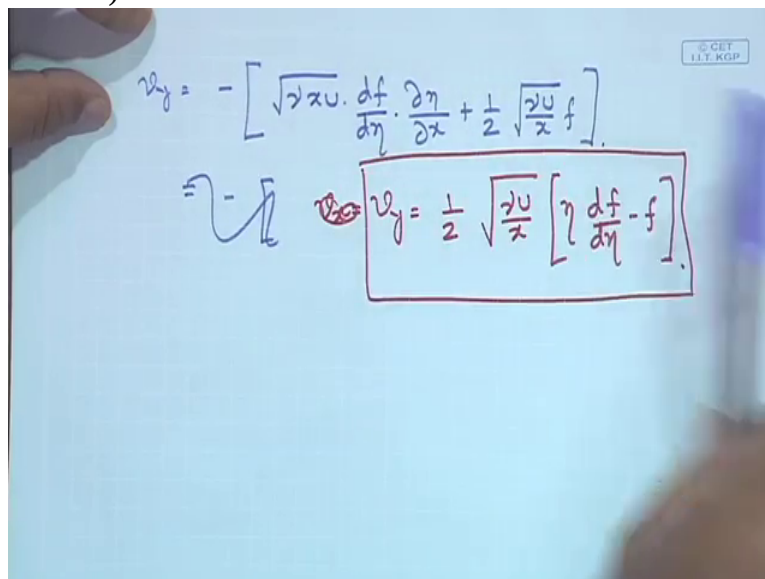 © CET
I.I.T. KGP
v_y = - [ √νxU · df/dη · ∂η/∂x + 1/2 √νU/x f ].
v_y = 1/2 √νU/x [ η df/dη - f ].